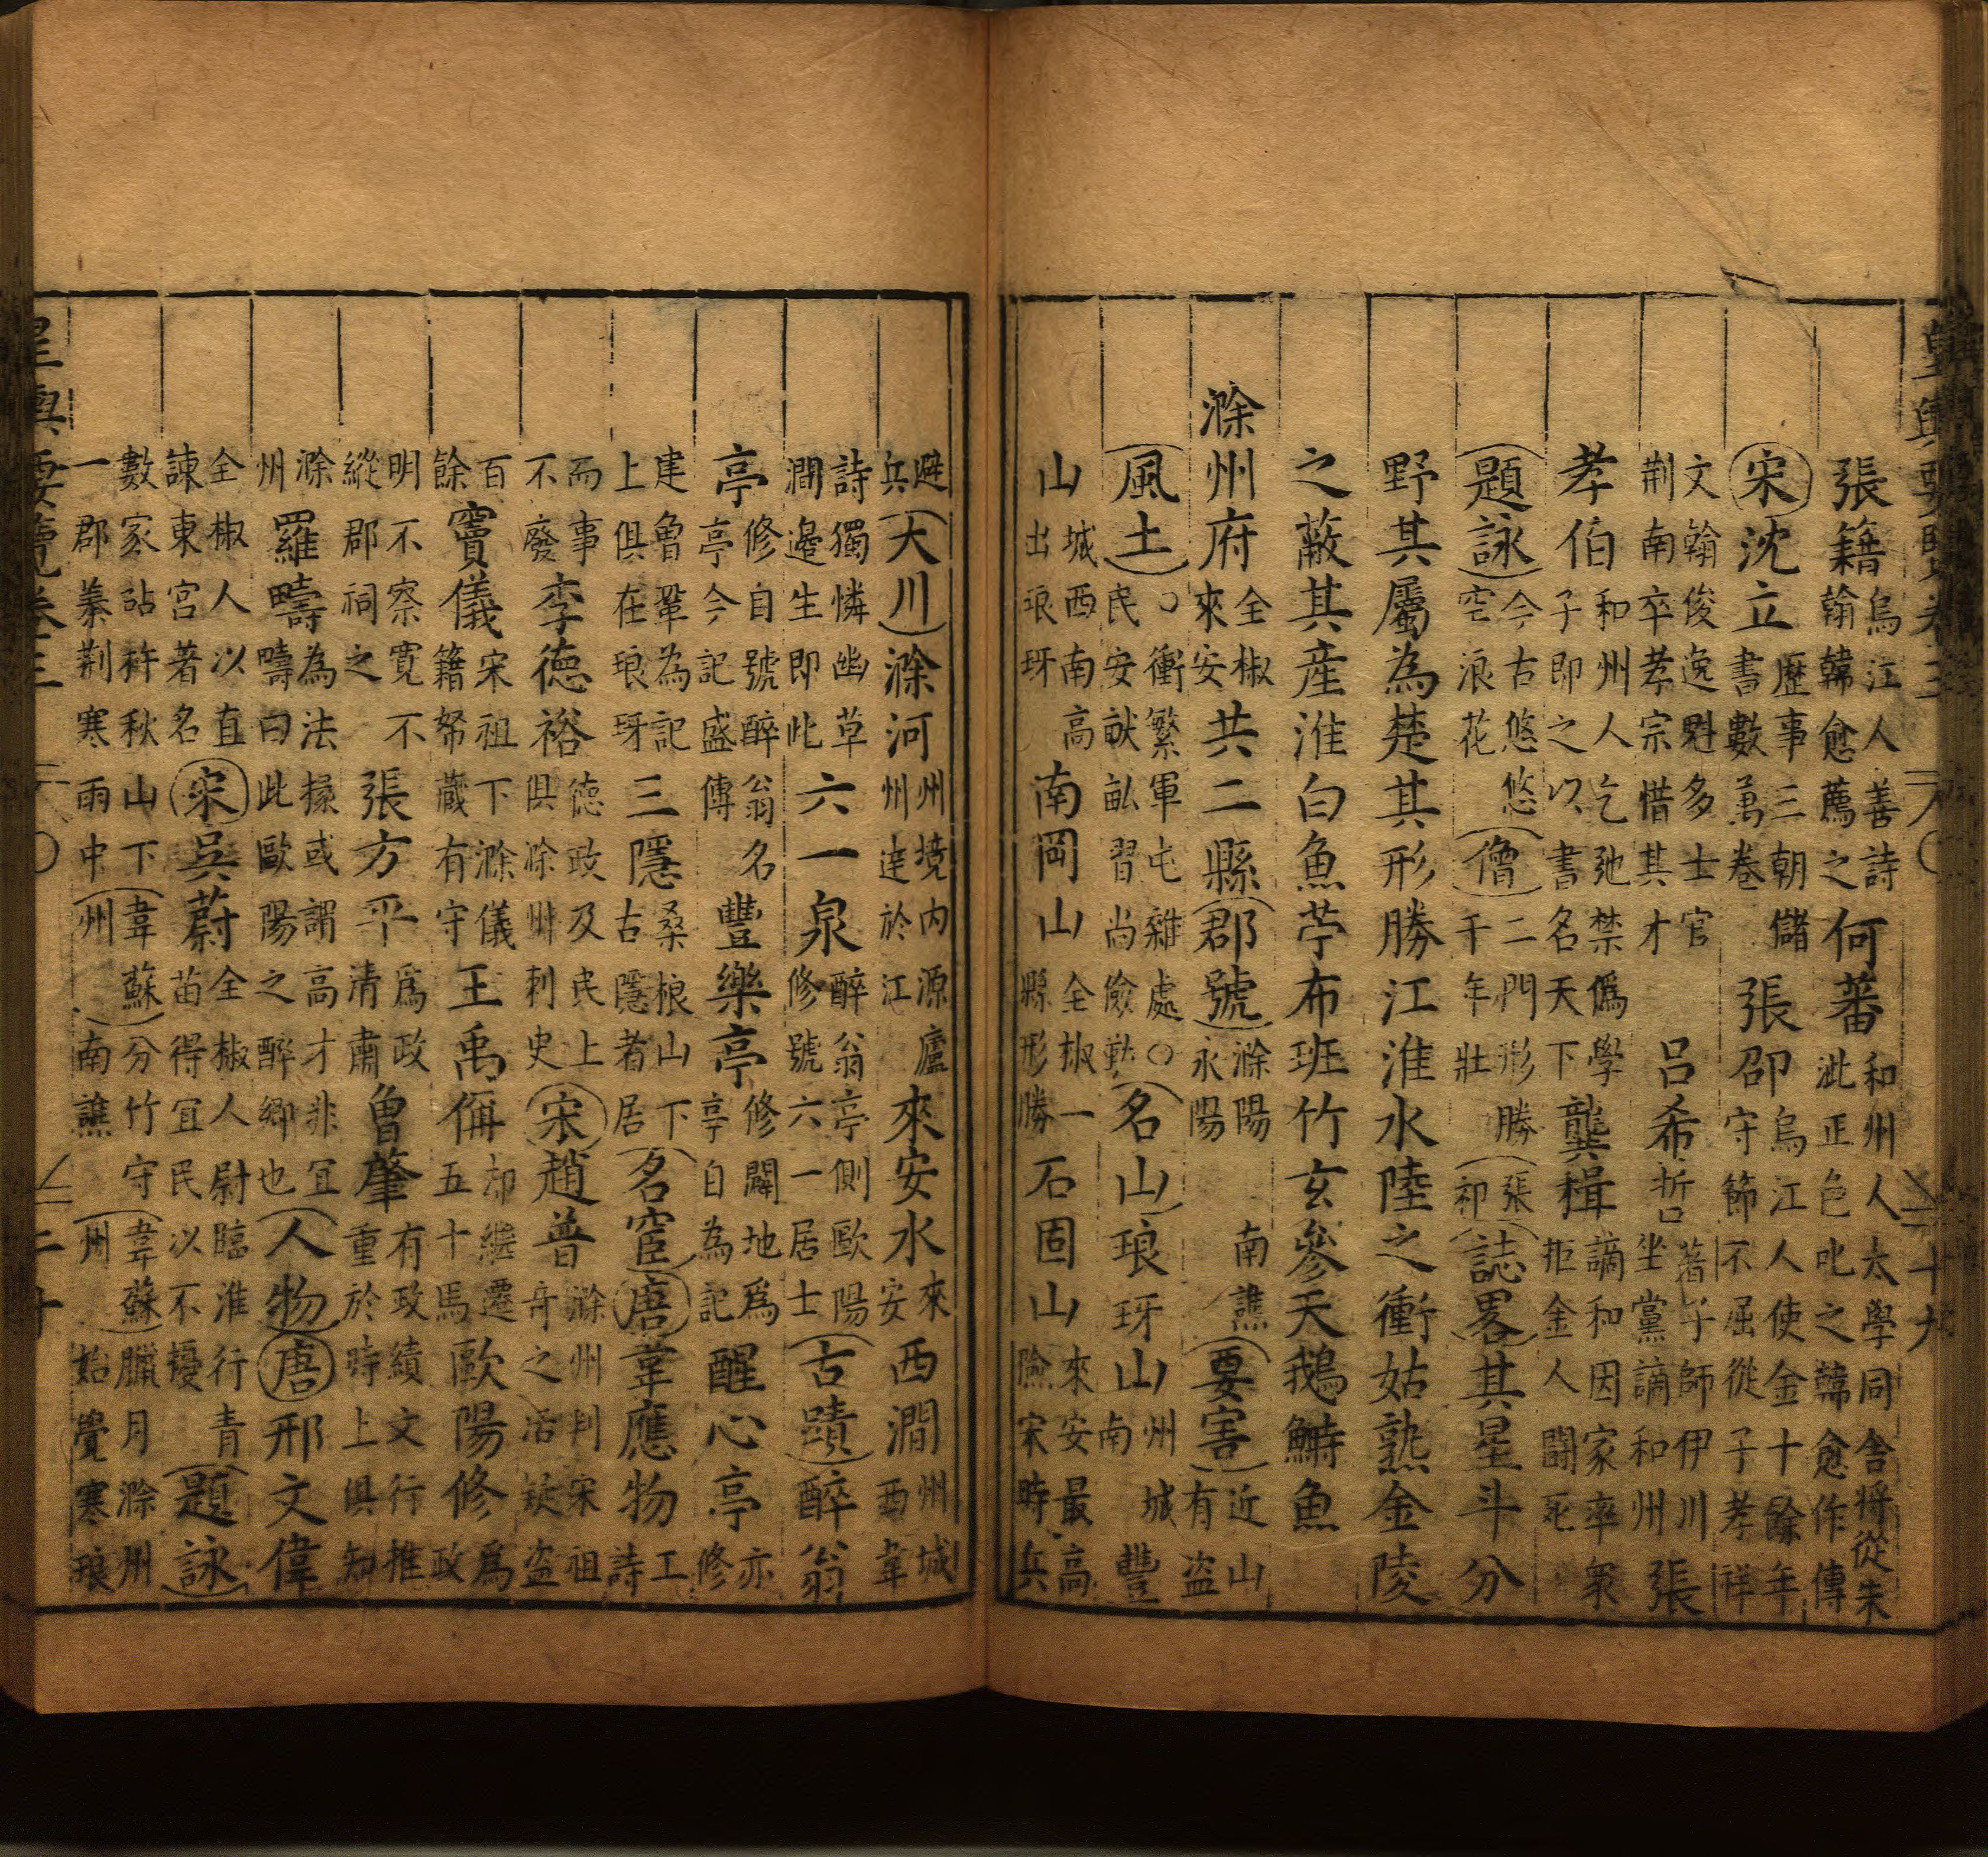 皇輿要覽卷三 十九
張籍 烏江人善詩翰韓愈薦之 何蕃 和州人太學同舍將從朱泚正色叱之韓愈作傳
宋 沈立 歷事三朝儲書數萬卷 張邵 烏江人使金十餘年守節不屈從子孝祥
文翰俊逸魁多士官荆南卒孝宗惜其才 呂希哲 著子師伊川坐黨謫和州 張
孝伯 和州人乞弛禁僞學子即之以書名天下 龔楫 謫和因家率衆拒金人鬭死
題詠 今古悠悠空浪花 僧 二門形勝千年壯 張祁 誌畧 其星斗分
野其屬為楚其形勝江淮水陸之衝姑熟金陵
之蔽其産淮白魚苧布班竹玄參天鵝鰣魚
滁州府 全椒來安 共二縣 郡號 滁陽永陽南譙 要害 近山有盗
風土 ○衝繁軍屯雜處○民安畎畝習尚儉勤 名山 琅玡山 州城南 豐
山 城西南高出琅玡 南岡山 全椒一縣形勝 石固山 來安最高險宋時兵
避兵 大川 滁河 州境内源廬州達於江 來安水 來安 西澗 州城西韋
詩獨憐幽草澗邊生即此 六一泉 醉翁亭側歐陽修號六一居士 古蹟 醉翁
亭 修自號醉翁名亭今記盛傳 豐樂亭 修闢地爲亭自為記 醒心亭 亦修
建魯鞏為記上俱在琅玡 三隱 桑根山下古隱者居 名宦 唐 韋應物 工詩
而事不廢 李德裕 德政及民上俱滁州刺史 宋 趙普 滁州判宋祖奇之活疑盗
百餘 竇儀 宋祖下滁儀籍帑藏有守 王禹偁 却繼遷五十馬 歐陽修 爲政
明不察寛不縱郡祠之 張方平 爲政清肅 曾肇 有政績文行推重於時上俱知
滁州 羅疇 為法掾或謂高才非宜疇曰此歐陽之醉鄉也 人物 唐 邢文偉
全椒人以直諫東宮著名 宋 吳蔚 全椒人尉臨淮行青苗得宜民以不擾 題詠
數家砧杵秋山下一郡蓁荆寒雨中 韋蘇州 分竹守南譙 韋蘇州 臘月滁州始覺寒琅
皇輿要覽卷三 二十